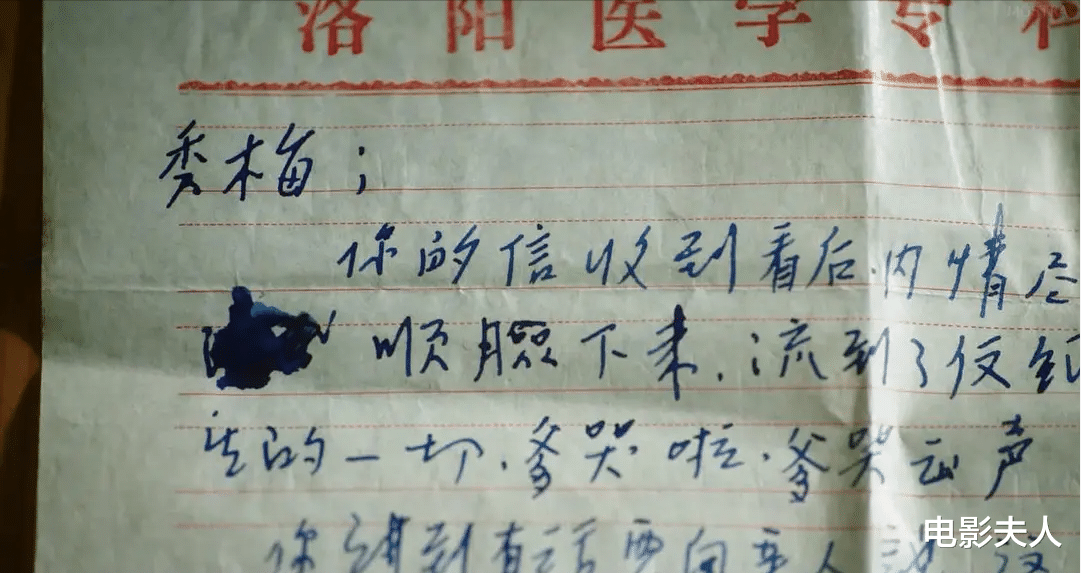 洛阳医学专科
秀梅；
你的信收到看后.内情尽
顺脸下来.流到了仮纸
的一切.爹哭啦.爹哭出声
你讲到有话要向亲人说.
电影夫人